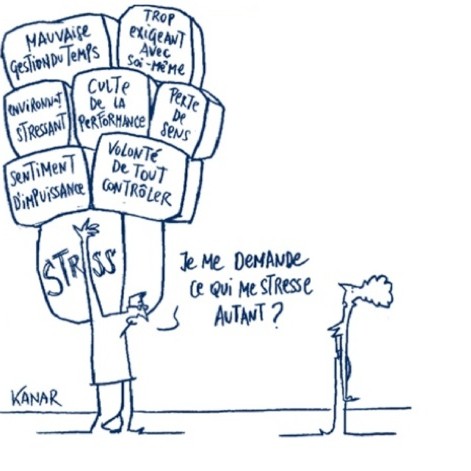 MAUVAISE
GESTION DU TEMPS
TROP
EXIGEANT
AVEC
SOI-MÊME
ENVIRONNAT
STRESSANT
CULTE
DE LA
PERFORMANCE
PERTE
DE
SENS
SENTIMENT
D'IMPUISSANCE
VOLONTÉ
DE TOUT
CONTRÔLER
STRESS
JE ME DEMANDE
CE QUI ME STRESSE
AUTANT ?
KANAR